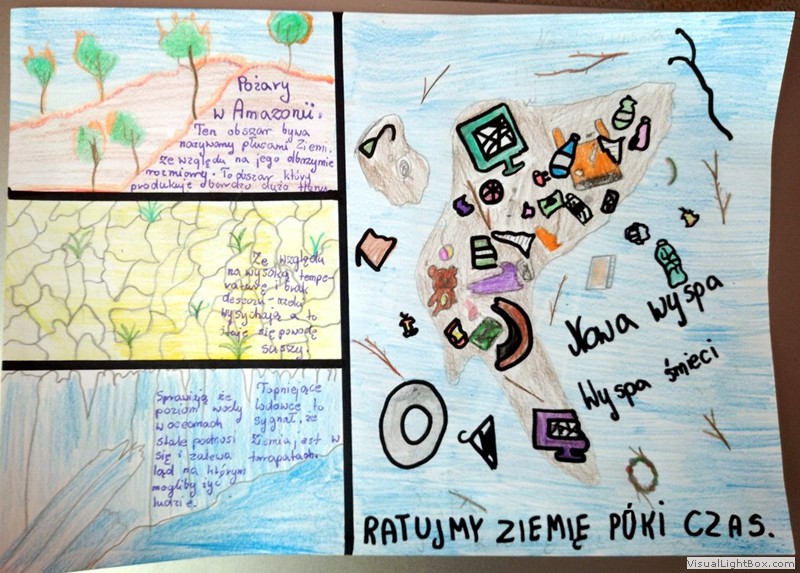 Pożary
w Amazonii.
Ten obszar bywa
nazywany płucami Ziemi,
ze względu na jego olbrzymie
rozmiary. To obszar który
produkuje bardzo dużo tlenu
Ze względu
na wysoką tempe-
raturę i brak
deszczu - rzeki
wysychają a to
staje się powodem
suszy.
Topniejące
lodowce to
sygnał, że
Ziemia jest w
tarapatach.
Sprawiają że
poziom wody
w oceanach
stale podnosi
się i zalewa
ląd na którym
mogliby żyć
ludzie.
Nowa wyspa
Wyspa śmieci
RATUJMY ZIEMIĘ PÓKI CZAS.
VisualLightBox.com